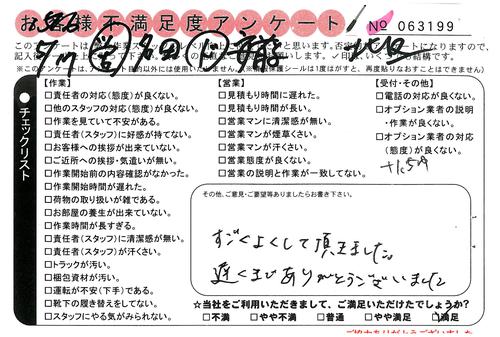 お客様不満足度アンケート
No 063199
【作業】
□責任者の対応(態度)が良くない。
□他のスタッフの対応(態度)が良くない。
□作業を見ていて不安がある。
□責任者(スタッフ)に好感が持てない。
□お客様への挨拶が出来ていない。
□ご近所への挨拶・気遣いが無い。
□作業開始前の内容確認がなかった。
□作業開始時間が遅れた。
□荷物の取り扱いが雑である。
□お部屋の養生が出来ていない。
□作業時間が長すぎる。
□責任者(スタッフ)に清潔感が無い。
□責任者(スタッフ)が汗くさい。
□トラックが汚い。
□梱包資材が汚い。
□運転が不安(下手)である。
□靴下の履き替えをしてない。
□スタッフにやる気がみられない。
【営業】
□見積もり時間に遅れた。
□見積もり時間が長い。
□営業マンに清潔感が無い。
□営業マンが煙草くさい。
□営業マンが汗くさい。
□営業態度が良くない。
□営業の説明と作業が一致してない。
【受付・その他】
□電話の対応が良くない。
□オプション業者の説明
・作業が良くない。
□オプション業者の対応
(態度)が良くない。
チェックリスト
その他、ご意見・ご要望等ありましたらお書き下さい。
すごくよくして頂きました。
遅くまでありがとうございました
☆当社をご利用いただきまして、ご満足いただけたでしょうか?
□不満 □やや不満 □普通 □やや満足 □満足
ご協力ありがとうございました